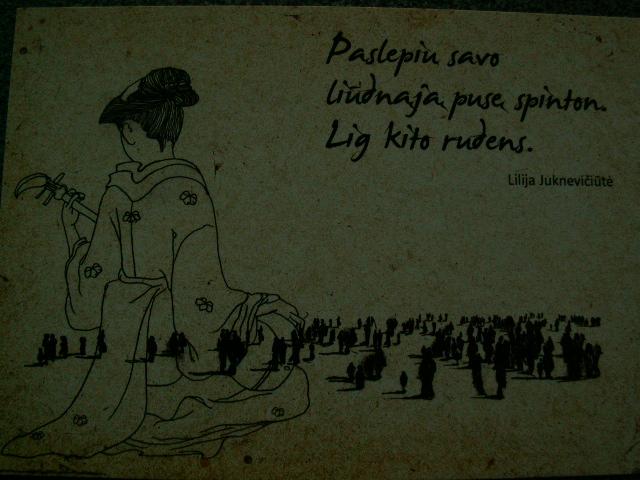 Paslepiu savo
liūdnąją pusę spinton.
Lig kito rudens.
Lilija Juknevičiūtė